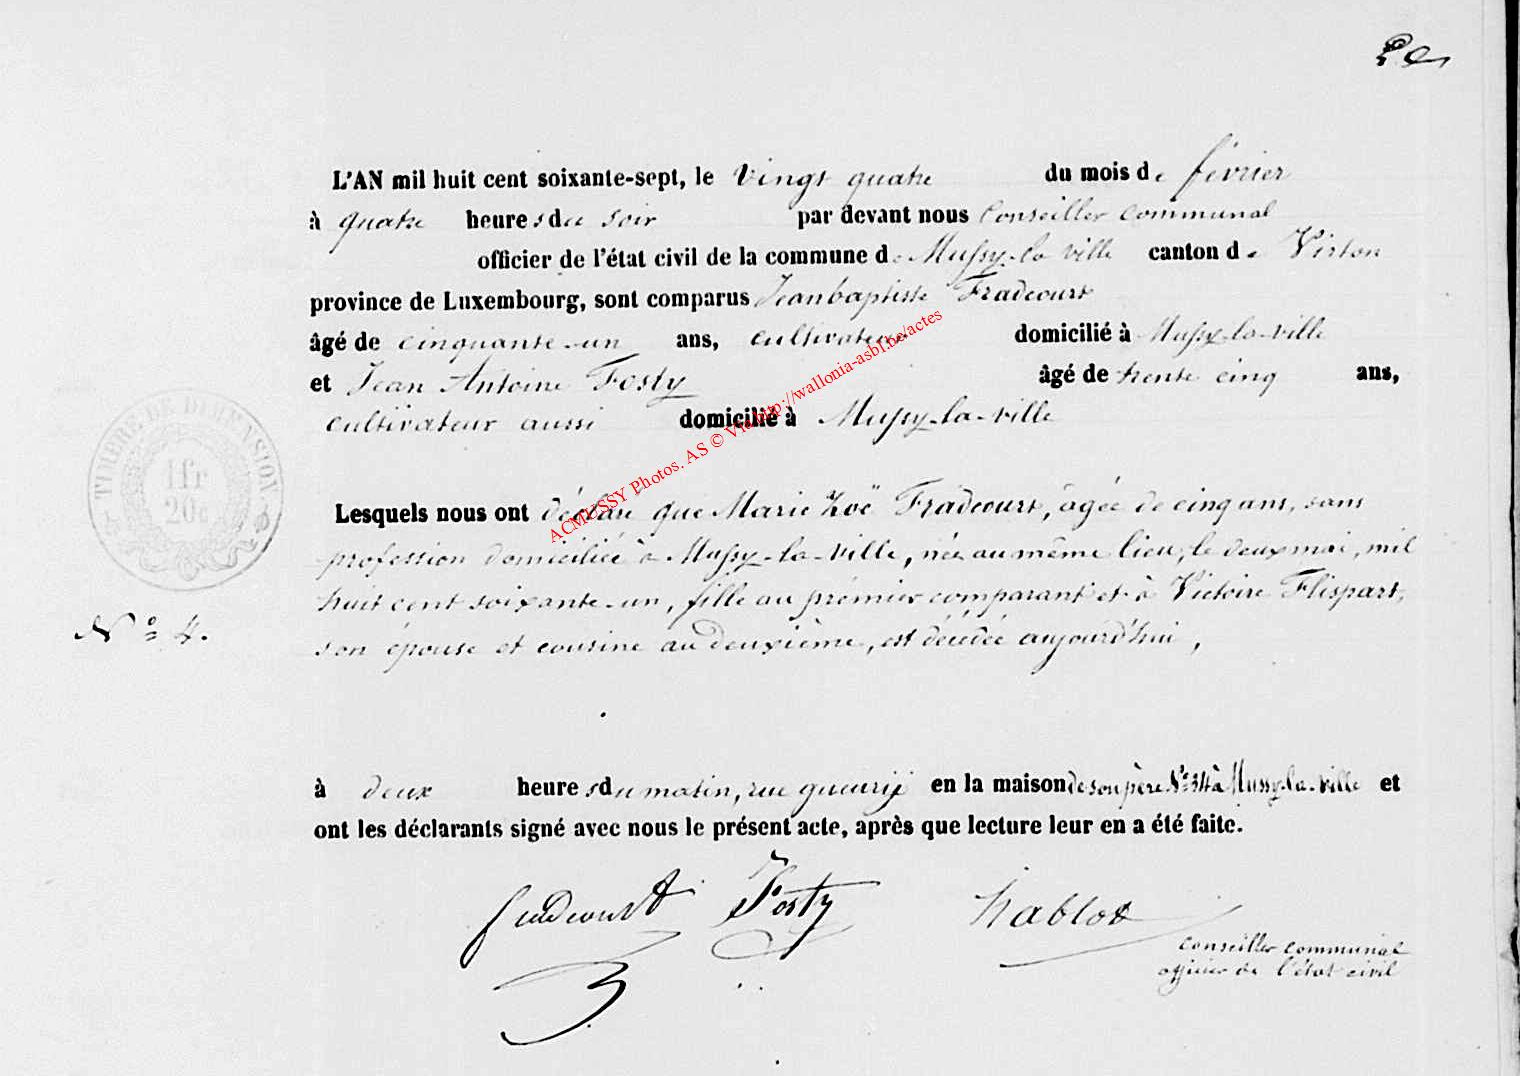 L'AN mil huit cent soixante-sept, le vingt quatre du mois de février
à quatre heures du soir par devant nous Conseiller communal
officier de l'état civil de la commune de Mussy-la-ville canton de Virton
province de Luxembourg, sont comparus Jeanbaptiste Fradcourt
âgé de cinquante-un ans, cultivateur domicilié à Mussy-la-ville
et Jean Antoine Fosty âgé de trente cinq ans,
cultivateur aussi domicilié à Mussy-la-ville
TIMBRE DE DIMENSION
1 fr
20c
Lesquels nous ont déclaré que Marie Zoë Fradcourt, âgée de cinq ans, sans
profession domiciliée à Mussy-la-ville, née au même lieu, le deux mai, mil
huit cent soixante-un, fille au prémier comparant et à Victoire Flispart,
son épouse et cousine au deuxième, est décédée aujourd'hui,
N° 4.
à deux heures du matin, rue en la maison de son père N° 34 à Mussy-la-ville et
ont les déclarants signé avec nous le présent acte, après que lecture leur en a été faite.
fradcourt Fosty hablot
conseiller communal
officier de l'état civil
ACMUSSY Photos. AS © Via http://wallonia-asbl.be/actes